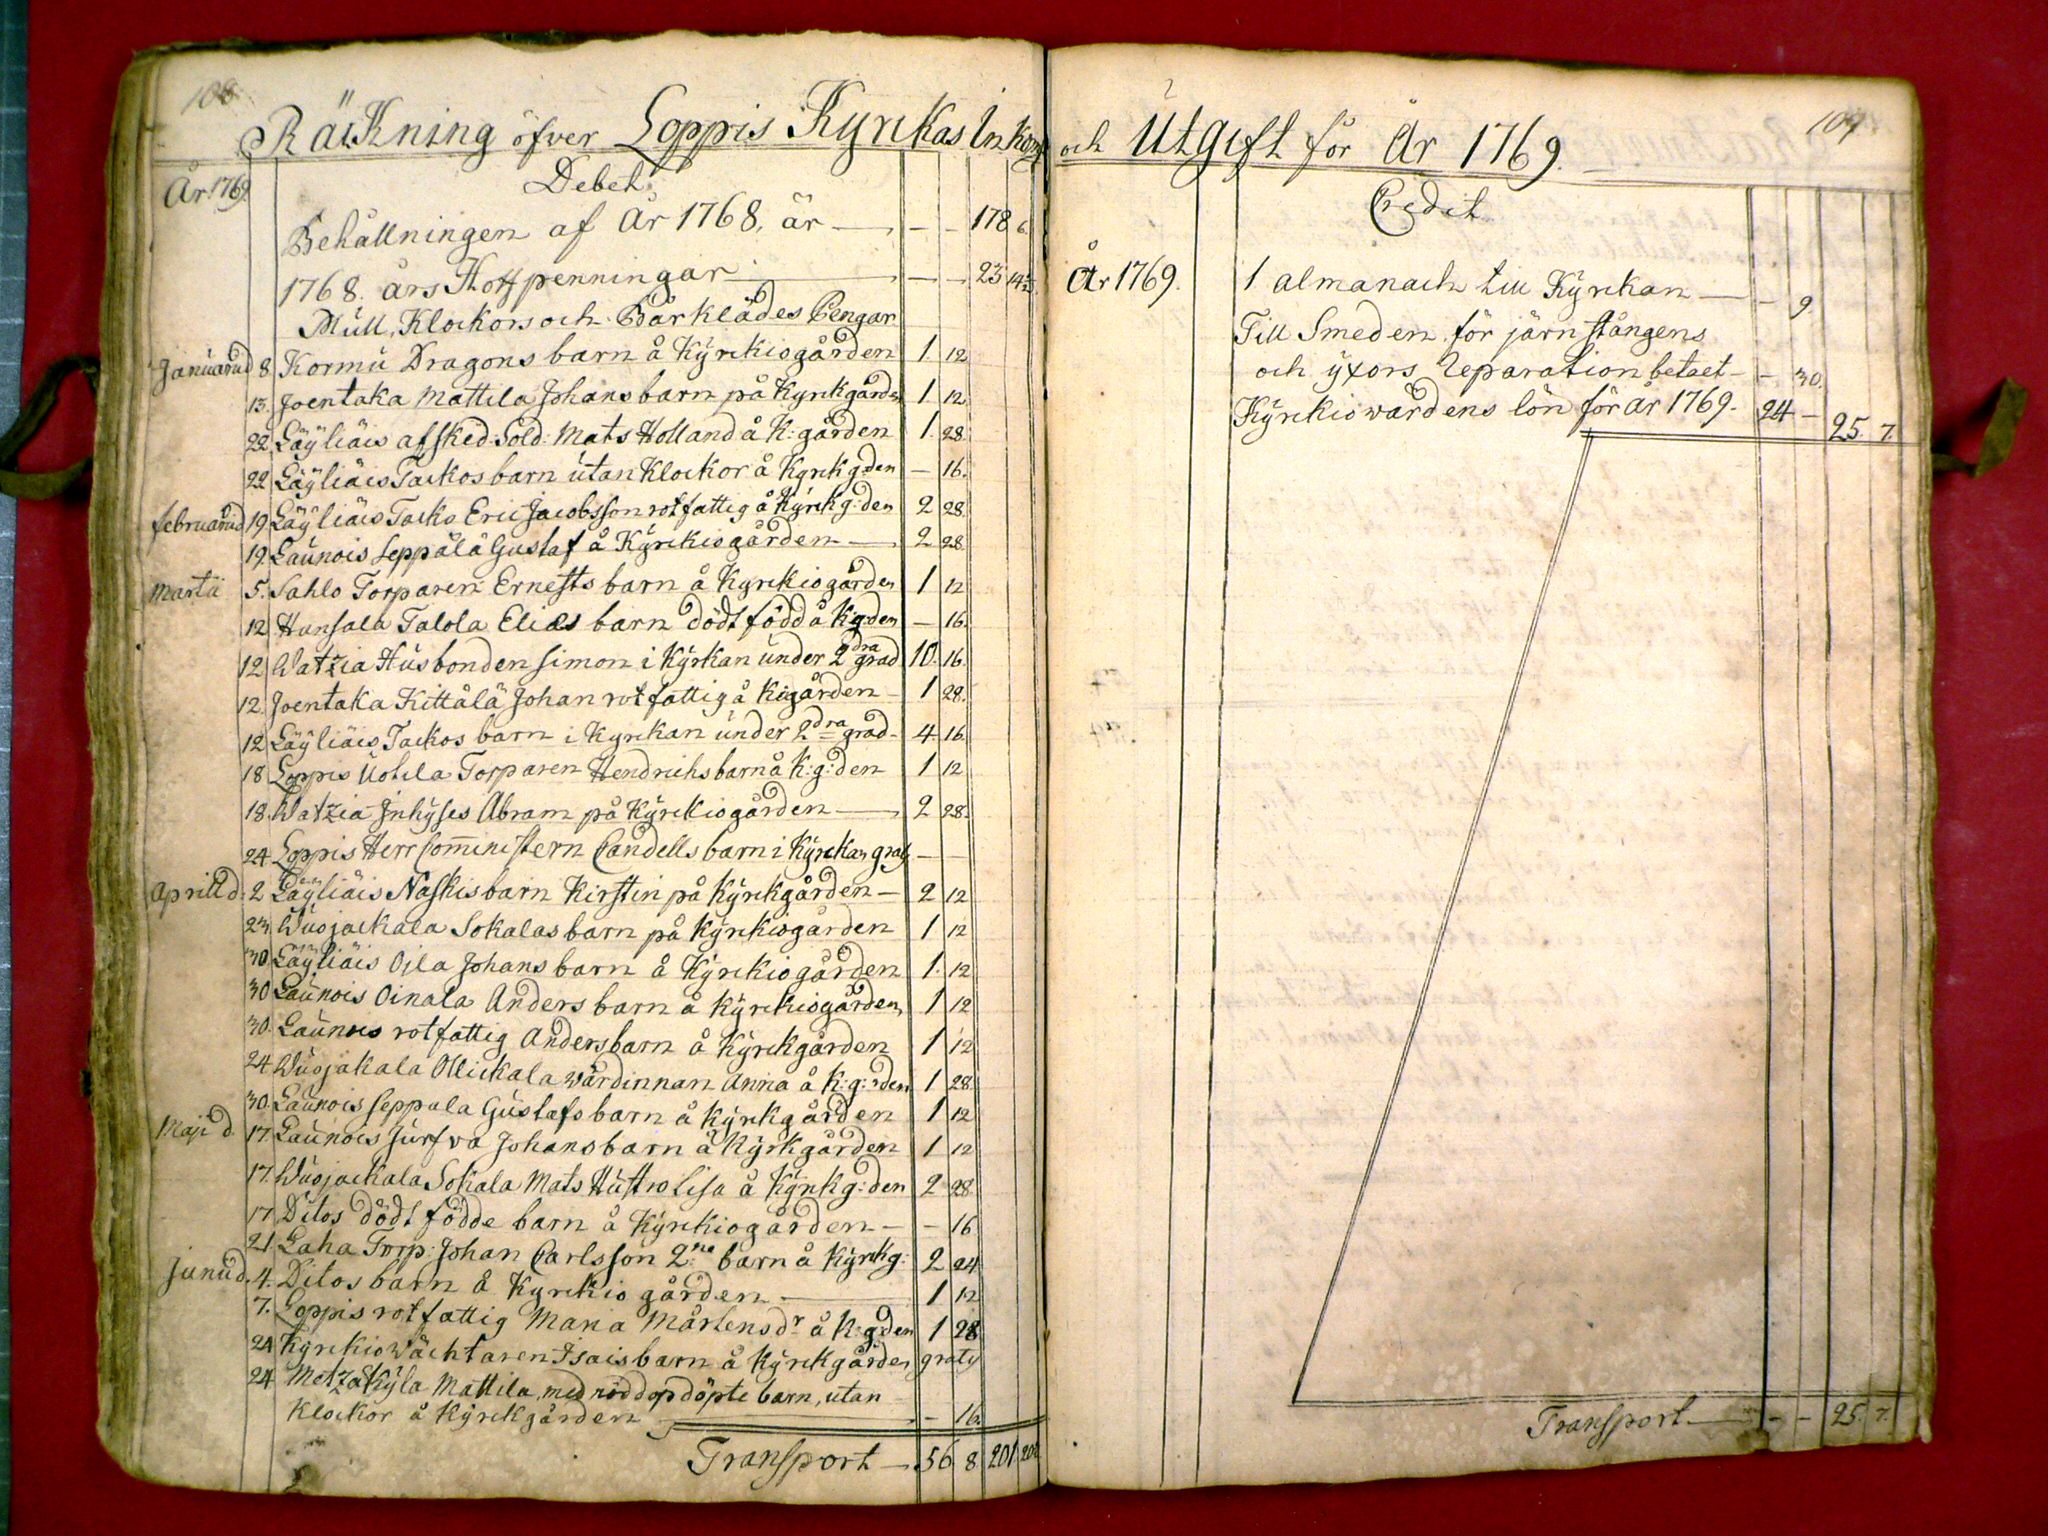 108
Räckning öfver Loppis Kyrckas Inkomst
År 1769.
Debet.
Behållningen af År 1768, är — — — 178 6.
1768. års Hofpenningar — — — 23 14½
Mull, Klockors och Bårklädes Pengar
Januarii d. 8. Kormu Dragons barn å Kyrckiogården 1. 12
13. Joentaka Mattila Johans barn på Kyrckgården 1 12.
22. Läyliäis afsked. Sold: Mats Holland å K: gården 1. 28.
22 Läyliäis Tackos barn utan Klockor å Kyrckg:den — 16.
februarii d 19. Läyliäis Tacko Eric Jacobsson rotfattig å Kyrckg:den 2 28.
19. Launois Seppälä Gustaf å Kyrckiogården — 2 28
Martii 5. Sahlo Torparen Ernests barn å Kyrckiogården 1 12
12 Hunsala Talola Elias barn dödt född å K:g:den — 16.
12 Watzia Husbonden Simon i Kyrkan under 2dra grad 10. 16.
12. Joentaka Kittälä Johan rotfattig å K:gården — 1 28.
12 Läyliäis Tackos barn i Kyrckan under 2dra grad — 4. 16.
18 Loppis Uotila Torparen Hendrichs barn å K:g:den 1 12
18. Watzia Inhyses Abram på Kyrckiogården — 2 28.
24 Loppis Herr Comministern Candells barn i Kyrckan gratis — —
Aprill d. 2 Läyliäis Naskis barn Kirstin på Kyrckgården — 2 12
23. Wuojackala Sokalas barn på Kyrckiogården 1 12
30. Läyliäis Oila Johans barn å Kyrckiogården 1. 12
30 Launois Oinala Anders barn å Kyrckiogården 1 12
30. Launois rotfattig Anders barn å Kyrckgården 1 12
24 Wuojakala Ollickala wärdinnan Anna å K:g:rden 1 28
30. Launois Seppala Gustafs barn å Kyrckgården 1 12
Maji d. 17. Launois Jurfva Johans barn å Kyrkgården 1 12
17. Wuojackala Sokala Mats Hustro Lisa å Kyrckg:den 2 28
17. Ditos dödt födde barn å Kyrckiogården — — 16
21. Laha Torp: Johan Carlsson 2:ne barn å Kyrckg: 2 24
Junii d. 4. Ditos barn å Kyrckiogården — 1 12
7. Loppis rotfattig Maria Mårtensdr å K:g:den 1 28
24 Kyrckiowächtaren Isais barn å Kyrckgården gratis
24 Metzäkyla Mattila, med nöddop döpte barn, utan
Klockor å Kyrckgården — — 16.
Transport — 56 8 201 20½
109
och Utgift för År 1769.
Credit
År 1769. 1 almanach till Kyrckan — — 9.
Till Smeden för järn stångens
och yxors Reparation betaet — — 30.
Kyrckiowardens lön för år 1769. 24 — 25. 7.
Transport — — — 25. 7.